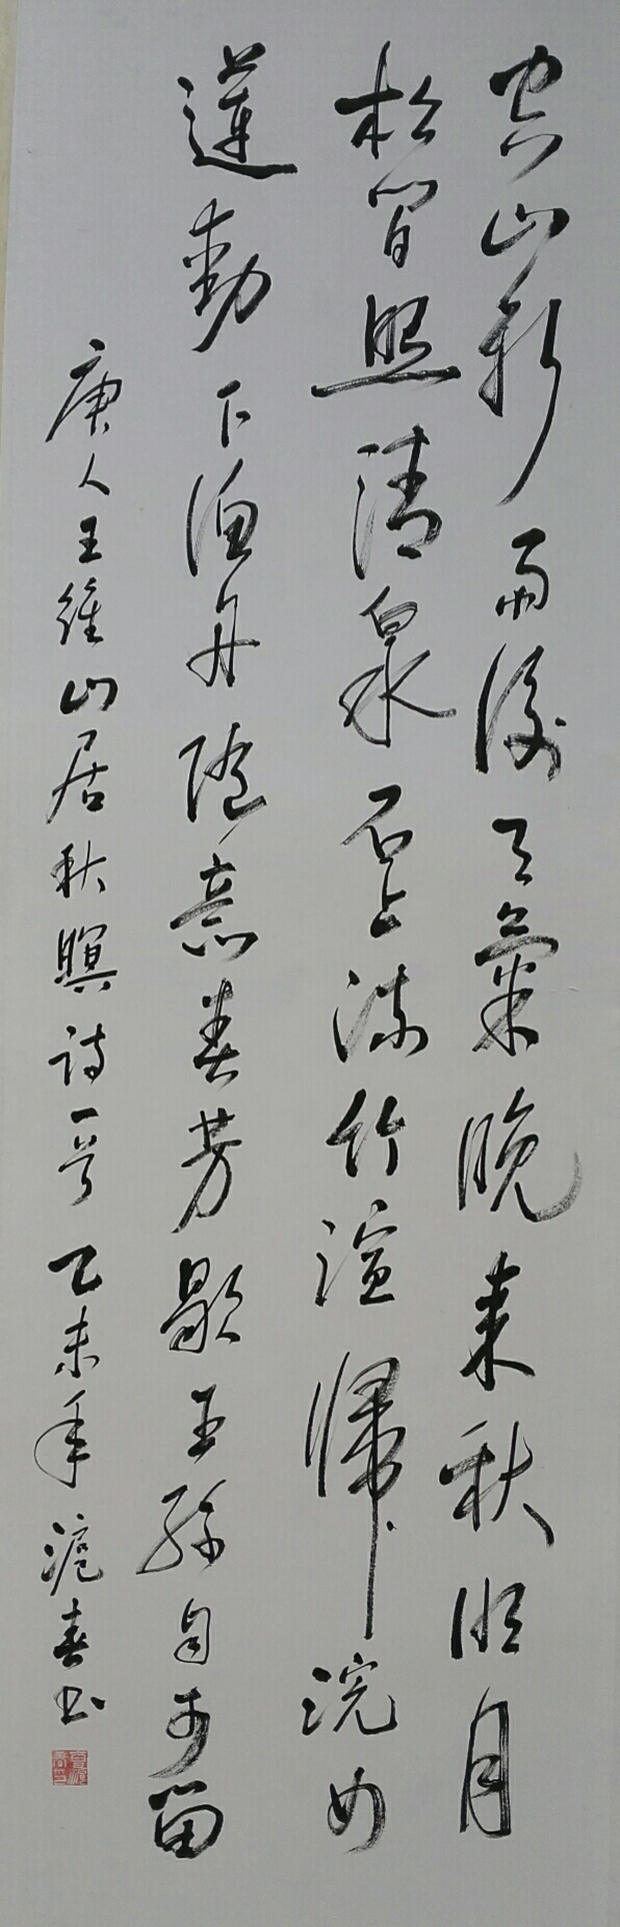 空山新雨後天氣晚来秋明月
松間照清泉石上流竹喧歸浣女
蓮動下漁舟随意春芳歇王孫自可留
唐人王維山居秋暝詩一首乙未年滬春书